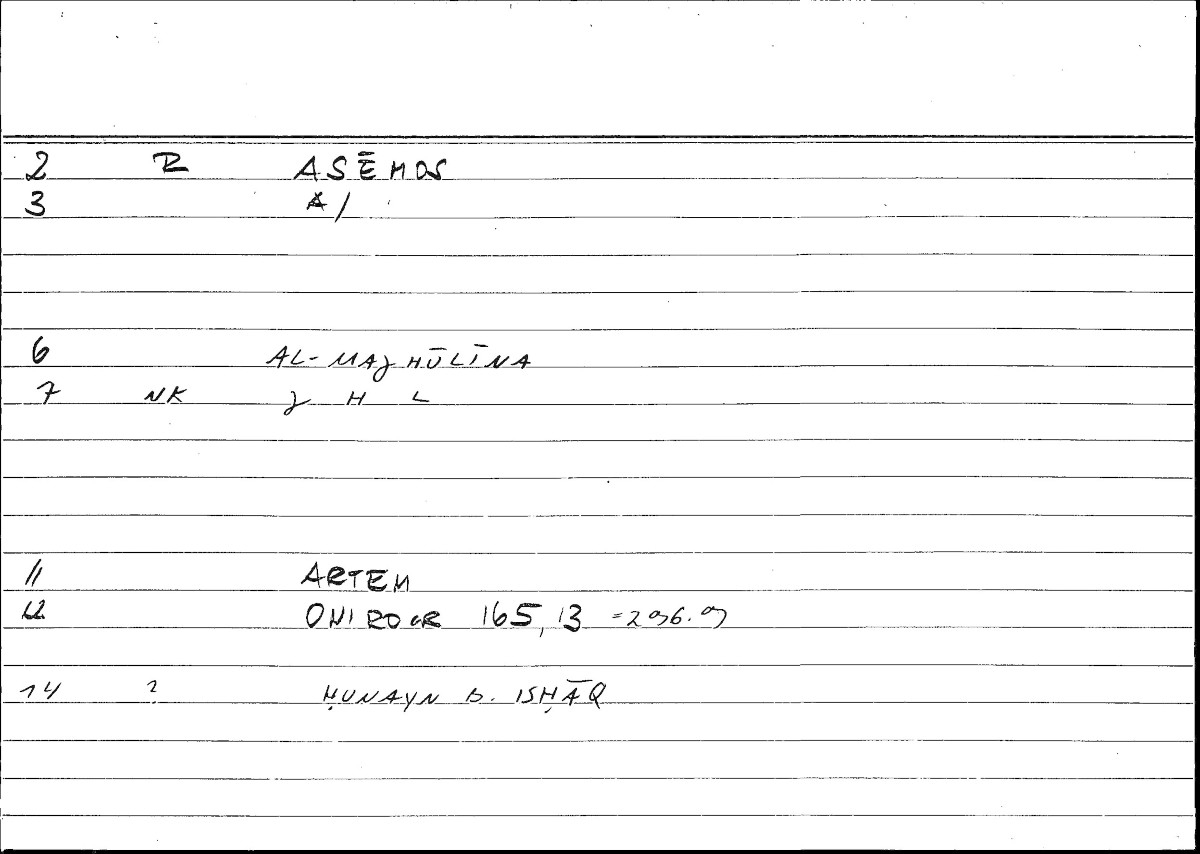 2 R ASĒMOS
3 A/
6 AL-MAJHŪLĪNA
7 NK J H L
11 ARTEM
12 ONIROCR 165,13 =296.9
14 ? ḤUNAYN B. ISḤĀQ